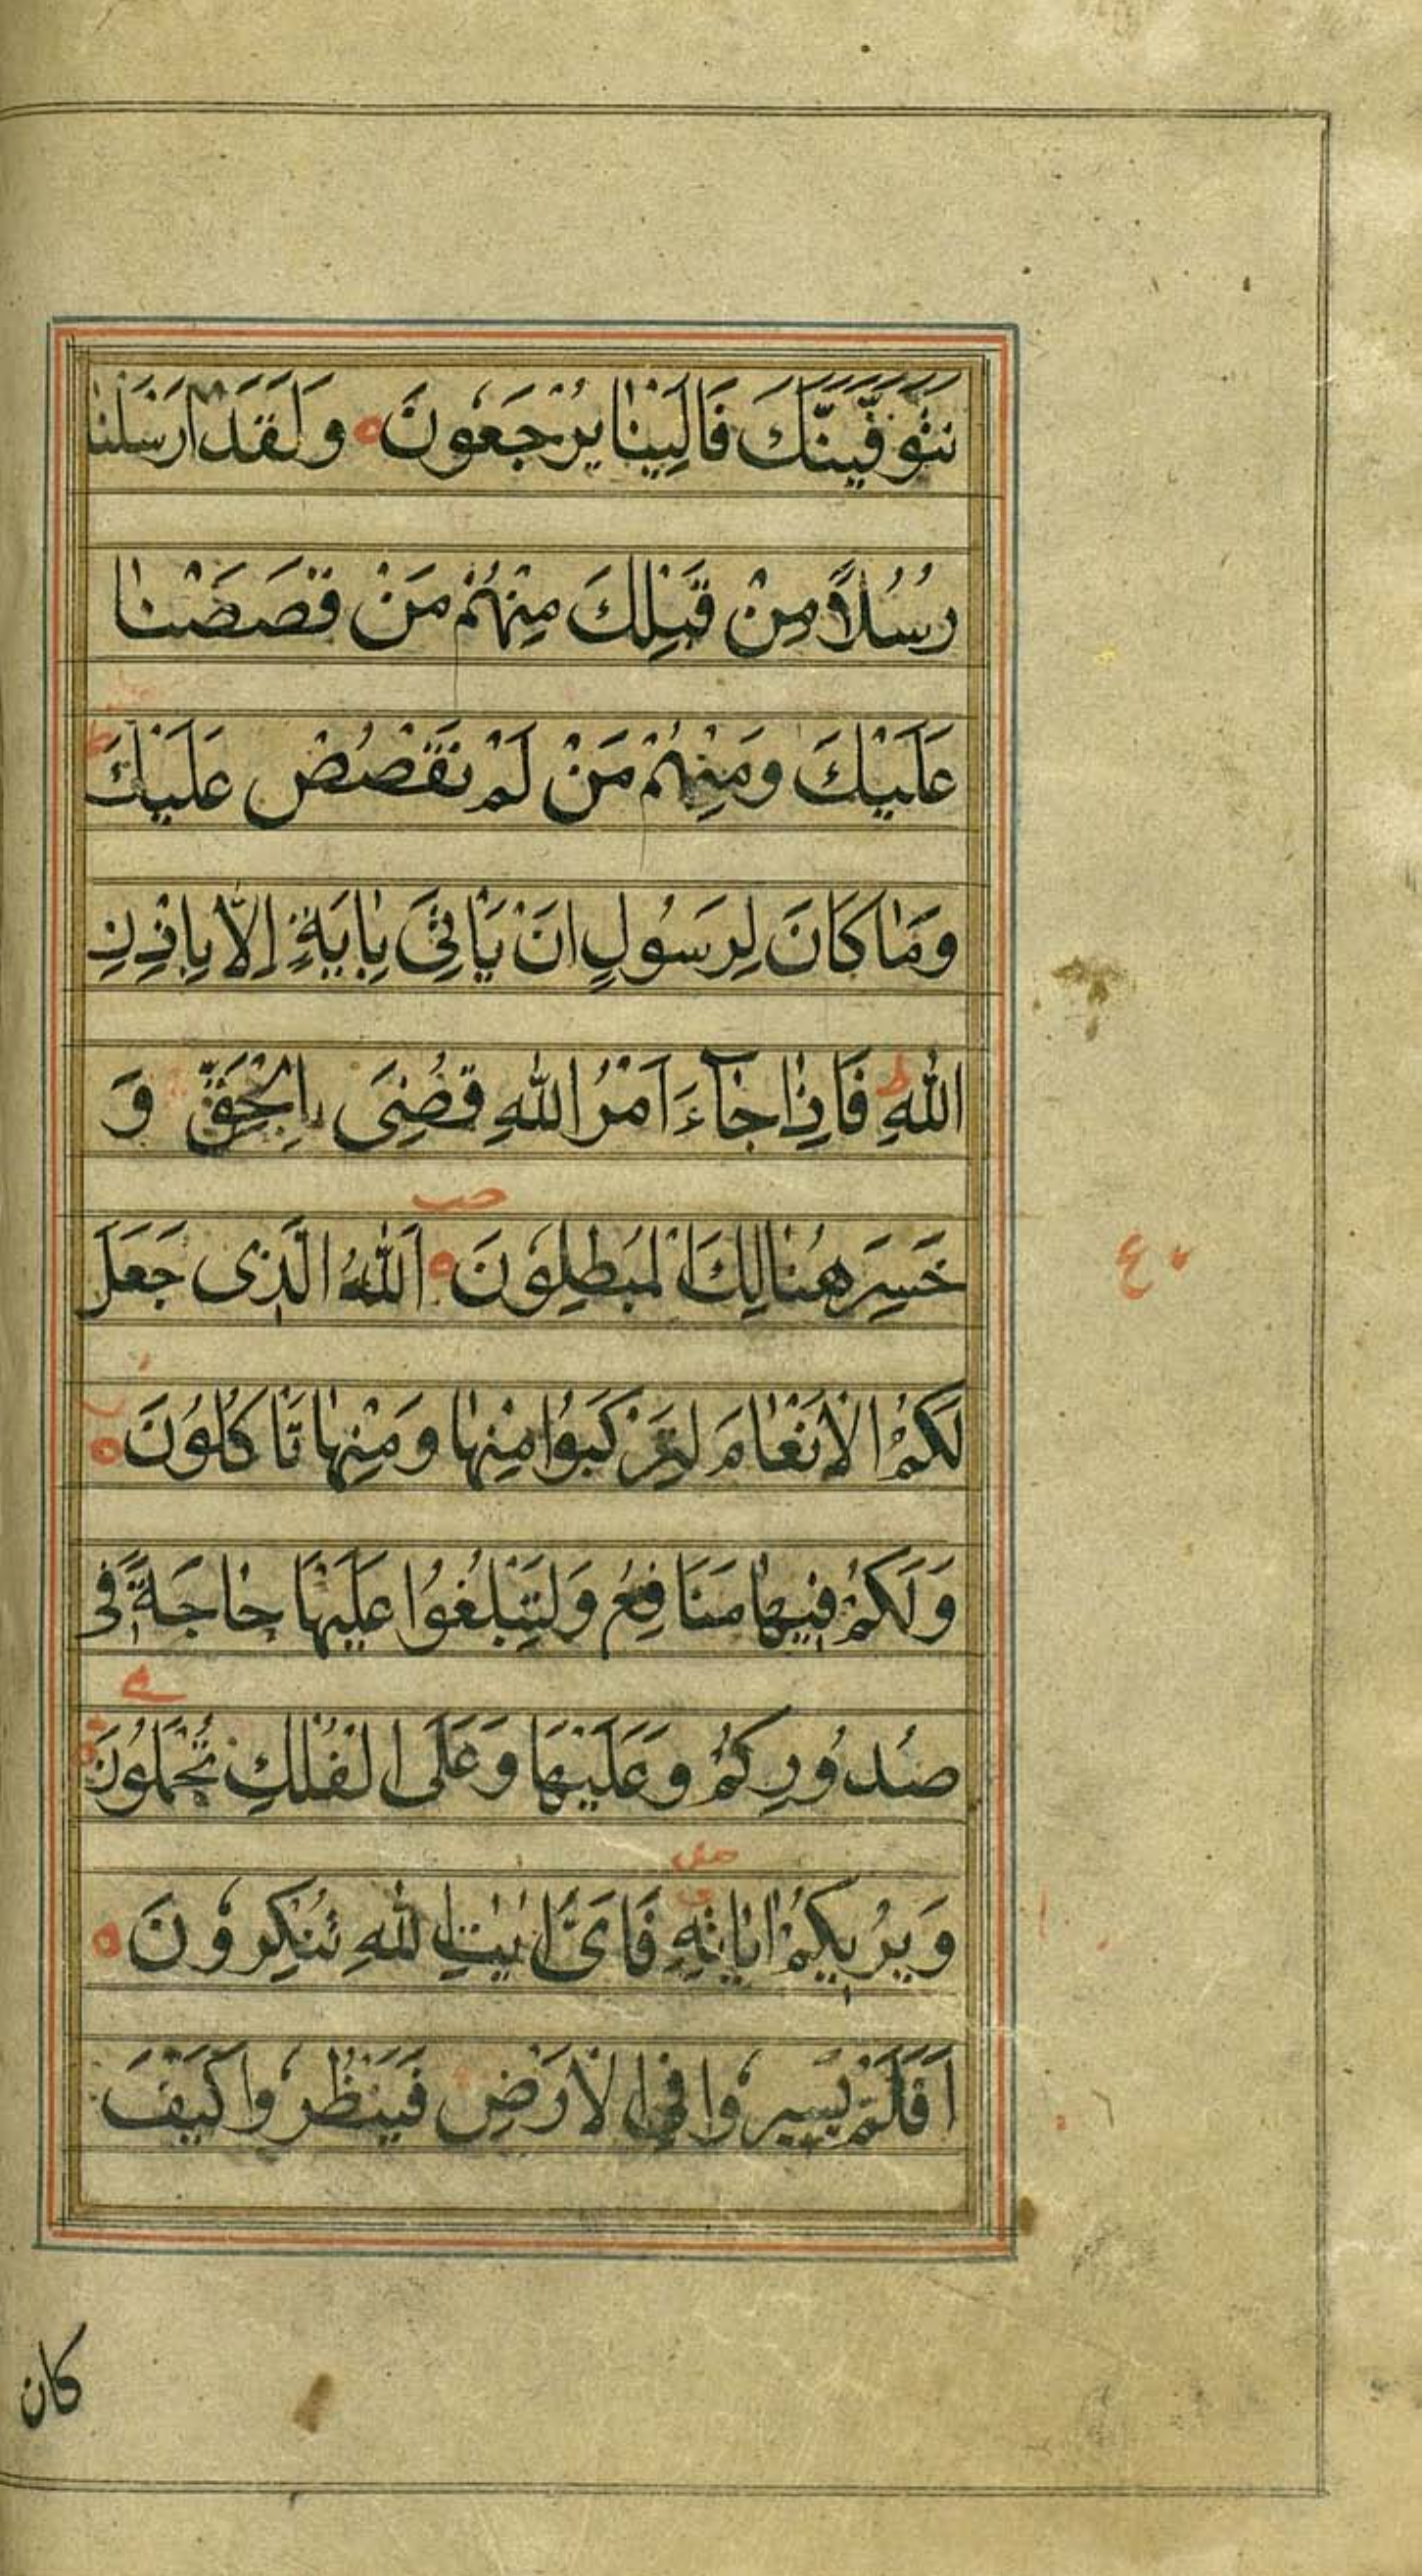 نَتَوَفَّيَنَّكَ فَاِلَيْنٰا يُرْجَعُونَ ه وَلَقَدْ اَرْسَلْنٰا
رُسُلاً مِنْ قَبْلِكَ مِنْهُمْ مَنْ قَصَصْنٰا
عَلَيْكَ وَمِنْهُمْ مَنْ لَمْ نَقْصُصْ عَلَيْكَ ط
وَمٰا كَانَ لِرَسُولٍ اَنْ يَاْتِىَ بِاٰيَةٍ اِلّاٰ بِاِذْنِ
اللّٰهِ ط فَاِذٰا جٰآءَ اَمْرُ اللّٰهِ قُضِىَ بِالْحَقِّ وَ
صب
خَسِرَ هُنٰالِكَ الْمُبْطِلُونَ ه اَللّٰهُ الَّذِى جَعَلَ
ع
لَكُمُ الْاَنْعٰامَ لِتَرْكَبُوا مِنْهٰا وَمِنْهٰا تَاْكُلُونَ ه
وَلَكُمْ فِيهٰا مَنَافِعُ وَلِتَبْلُغُوا عَلَيْهٰا حٰاجَةً فِى
صُدُورِكُمْ وَعَلَيْهَا وَعَلَى الْفُلْكِ تُحْمَلُونَ
وَيُرِيكُمْ اٰيٰاتِهِ فَاَىَّ اٰيٰتِ اللّٰهِ تُنْكِرُونَ ه
اَفَلَمْ يَسِيرُوا فِى الْاَرْضِ فَيَنْظُرُوا كَيْفَ
كان